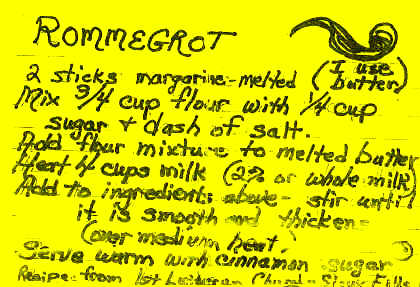 ROMMEGROT
2 sticks margarine-melted (I use butter)
Mix 3/4 cup flour with 1/4 cup
sugar + dash of salt.
Add flour mixture to melted butter
Heat 4 cups milk (2% or whole milk)
Add to ingredients above - stir until
it is smooth and thickens
(over medium heat.)
Serve warm with cinnamon sugar
Recipe from 1st Lutheran Church - Sioux Falls